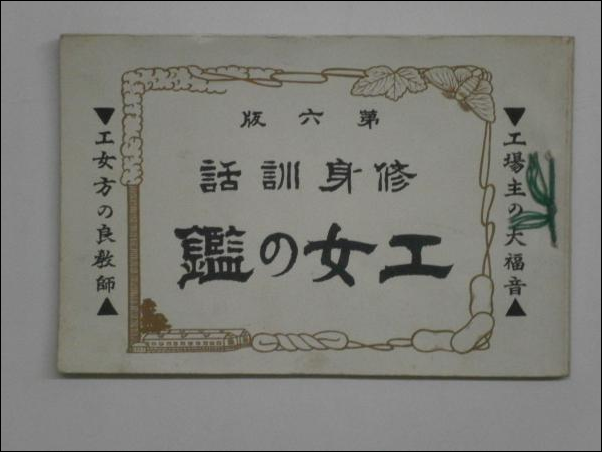 第六版
修身訓話
工女の鑑
▼工場主の大福音▲
▼工女方の良教師▲